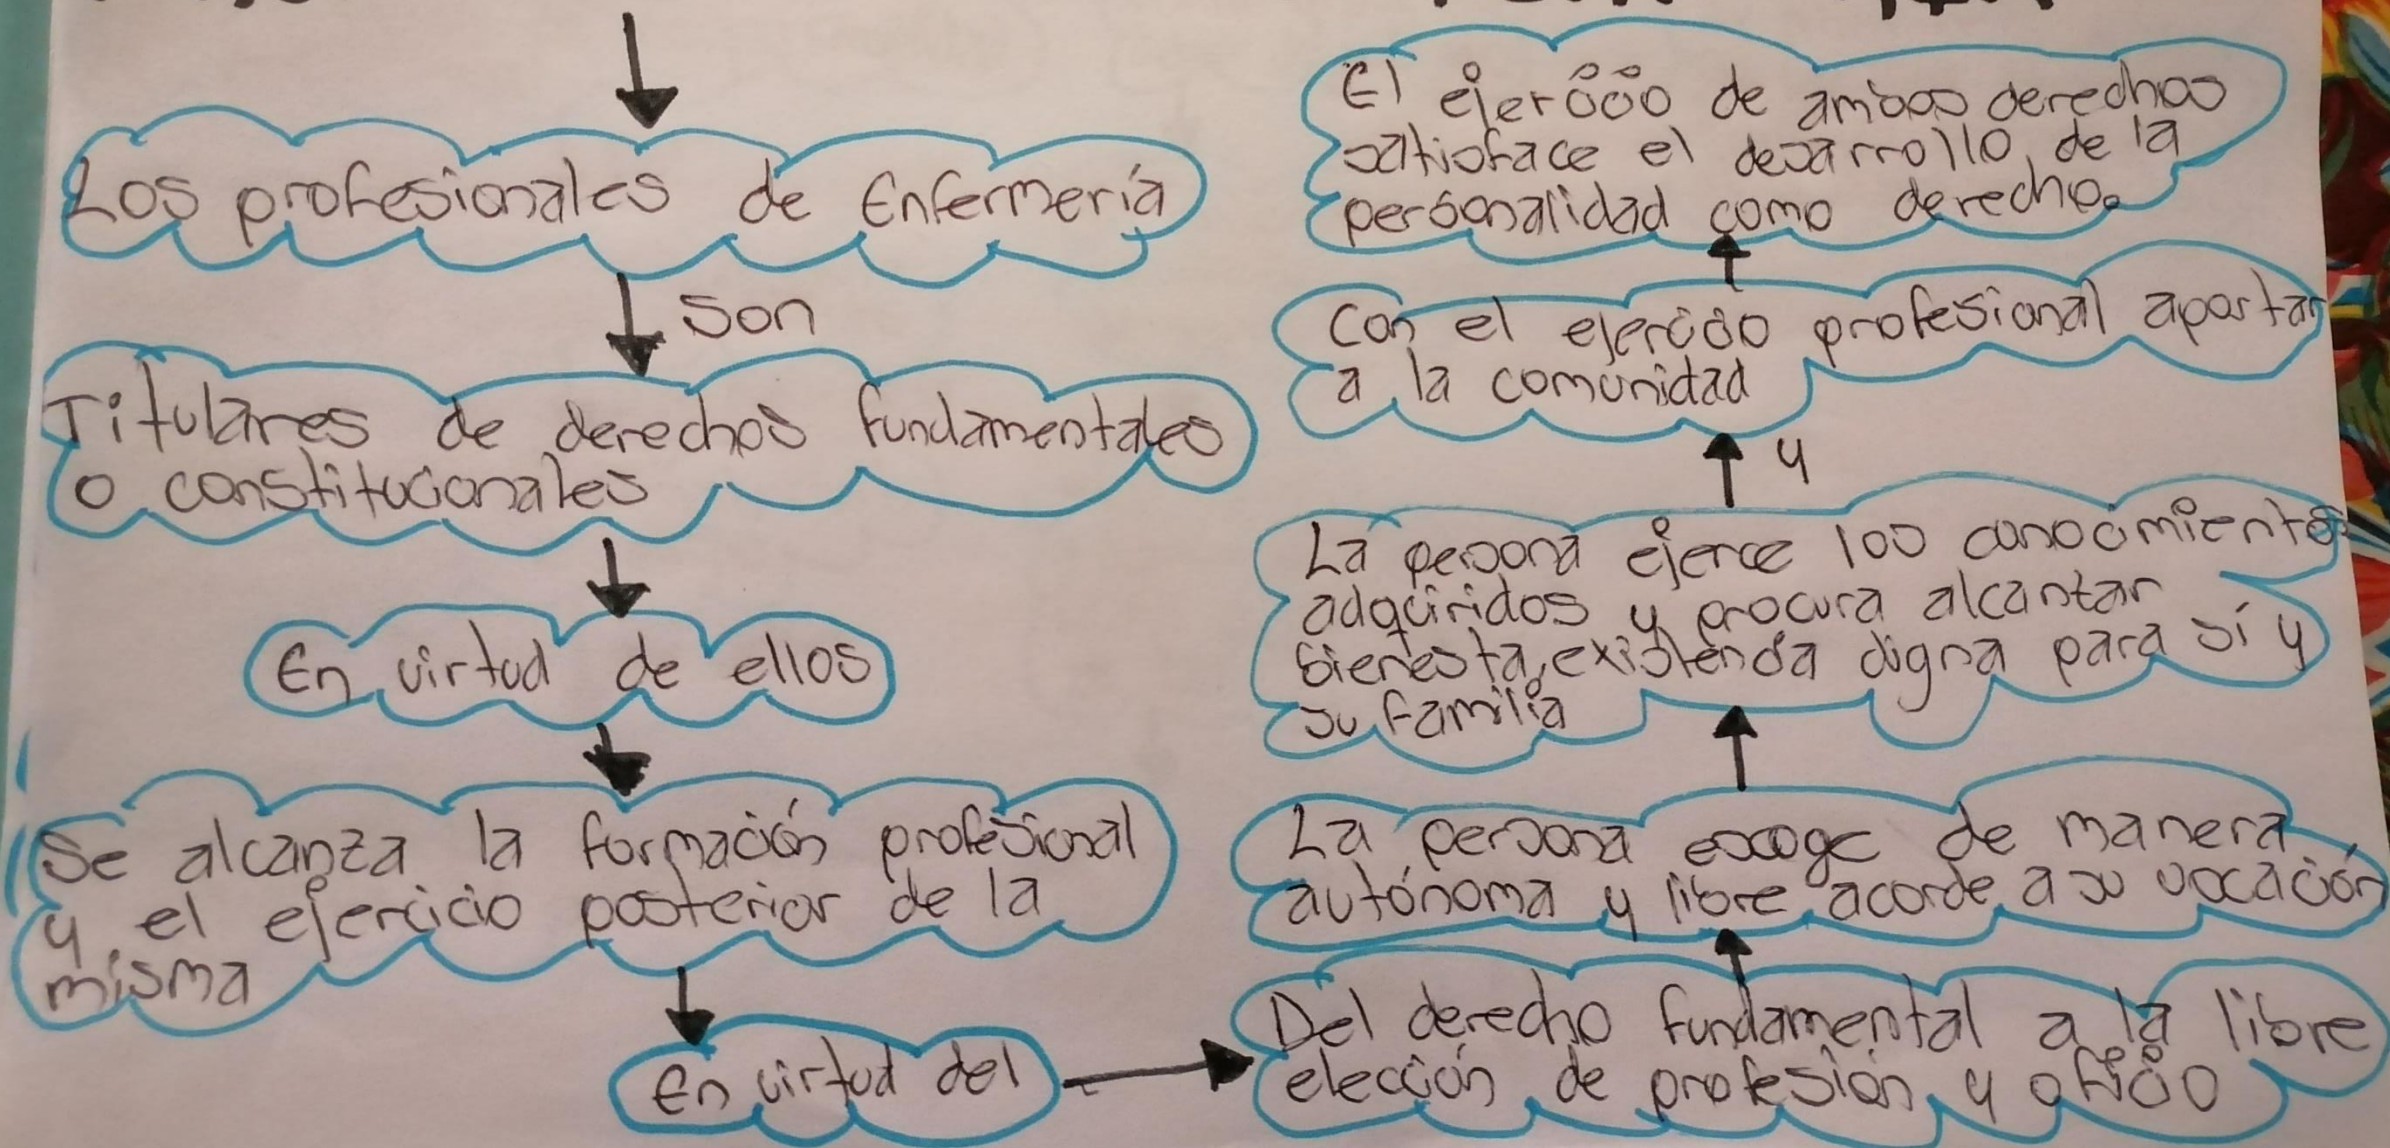 Los profesionales de Enfermería
son
Titulares de derechos fundamentales
o constitucionales
En virtud de ellos
Se alcanza la formación profesional
y el ejercicio posterior de la
misma
En virtud del
Del derecho fundamental a la libre
elección de profesión y oficio
La persona escoge de manera
autónoma y libre acorde a su vocación
La persona ejerce los conocimientos
adquiridos y procura alcantar
bienesta, existencia digna para sí y
su familia
y
Con el ejercicio profesional aportar
a la comunidad
El ejercicio de ambos derechos
satisface el desarrollo de la
personalidad como derecho.